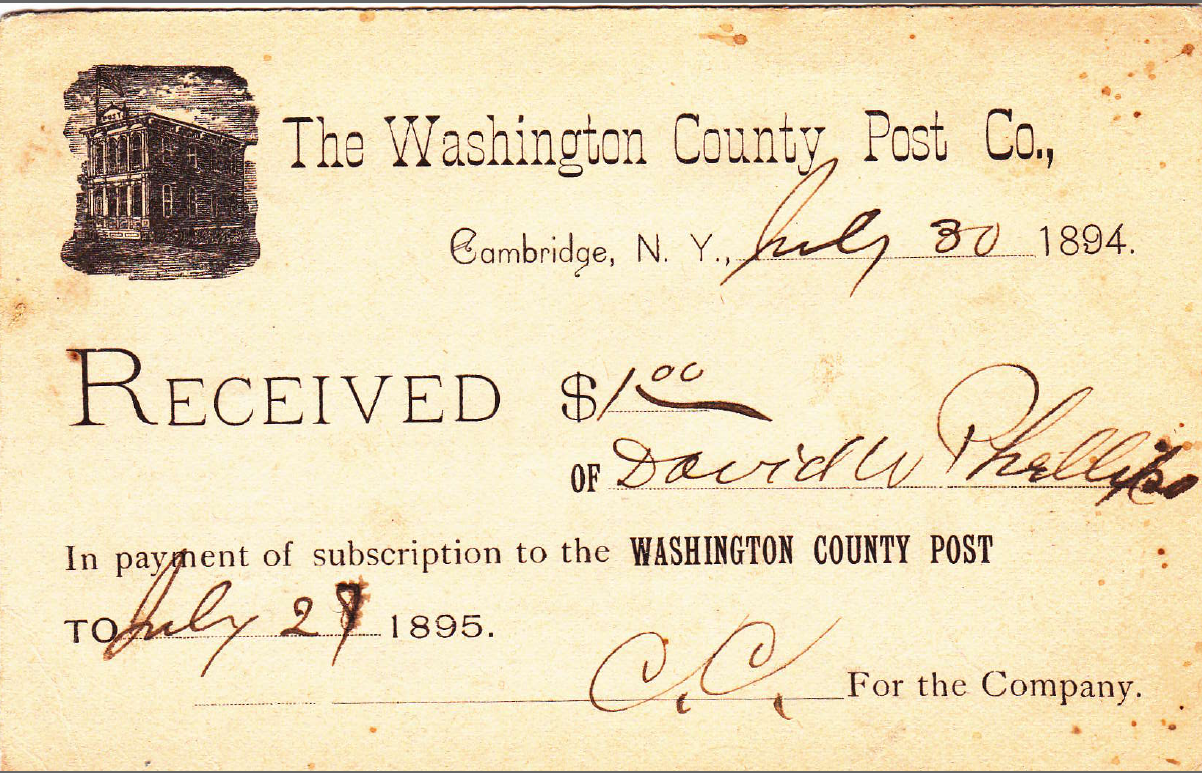 The Washington County Post Co.,
Cambridge, N. Y., July 30 1894.
RECEIVED $1.00
OF David W Phillips
In payment of subscription to the WASHINGTON COUNTY POST
TO July 27 1895.
C. C. For the Company.